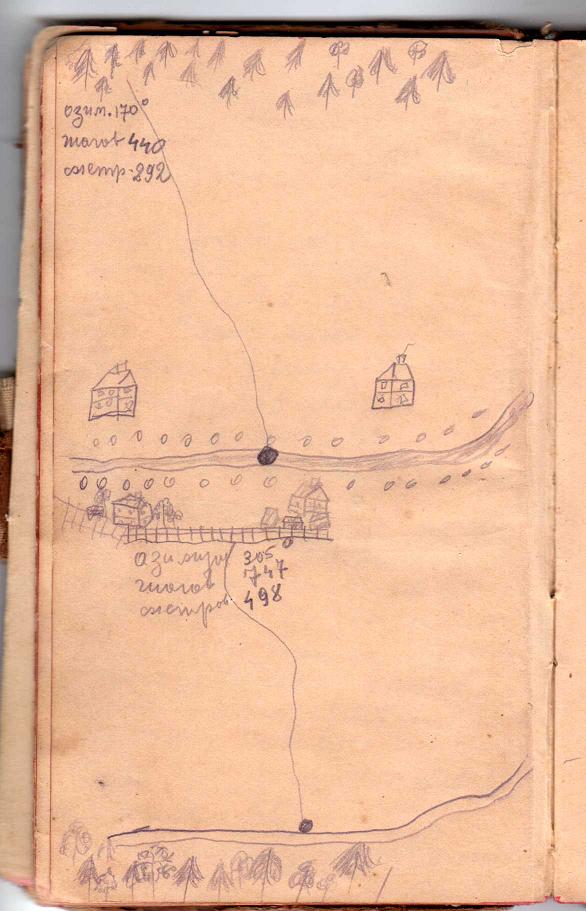 азим. 170°
шагов 440
метр. 292
Азимут 305°
шагов 747
метров 498